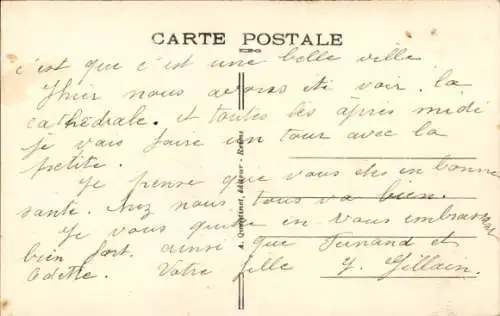 CARTE POSTALE
c'est que c'est une belle ville
Yhier nous avons été voir la
cathédrale. et toutes les après midi
je vais faire un tour avec la
petite.
Je pense que vous êtes en bonne
santé. chez nous tous va bien.
Je vous quitte en vous embrassant
bien fort. ainsi que Fernand et
Odette. Votre fille Y. Gillain.
A. Quentinet, éditeur - Reims